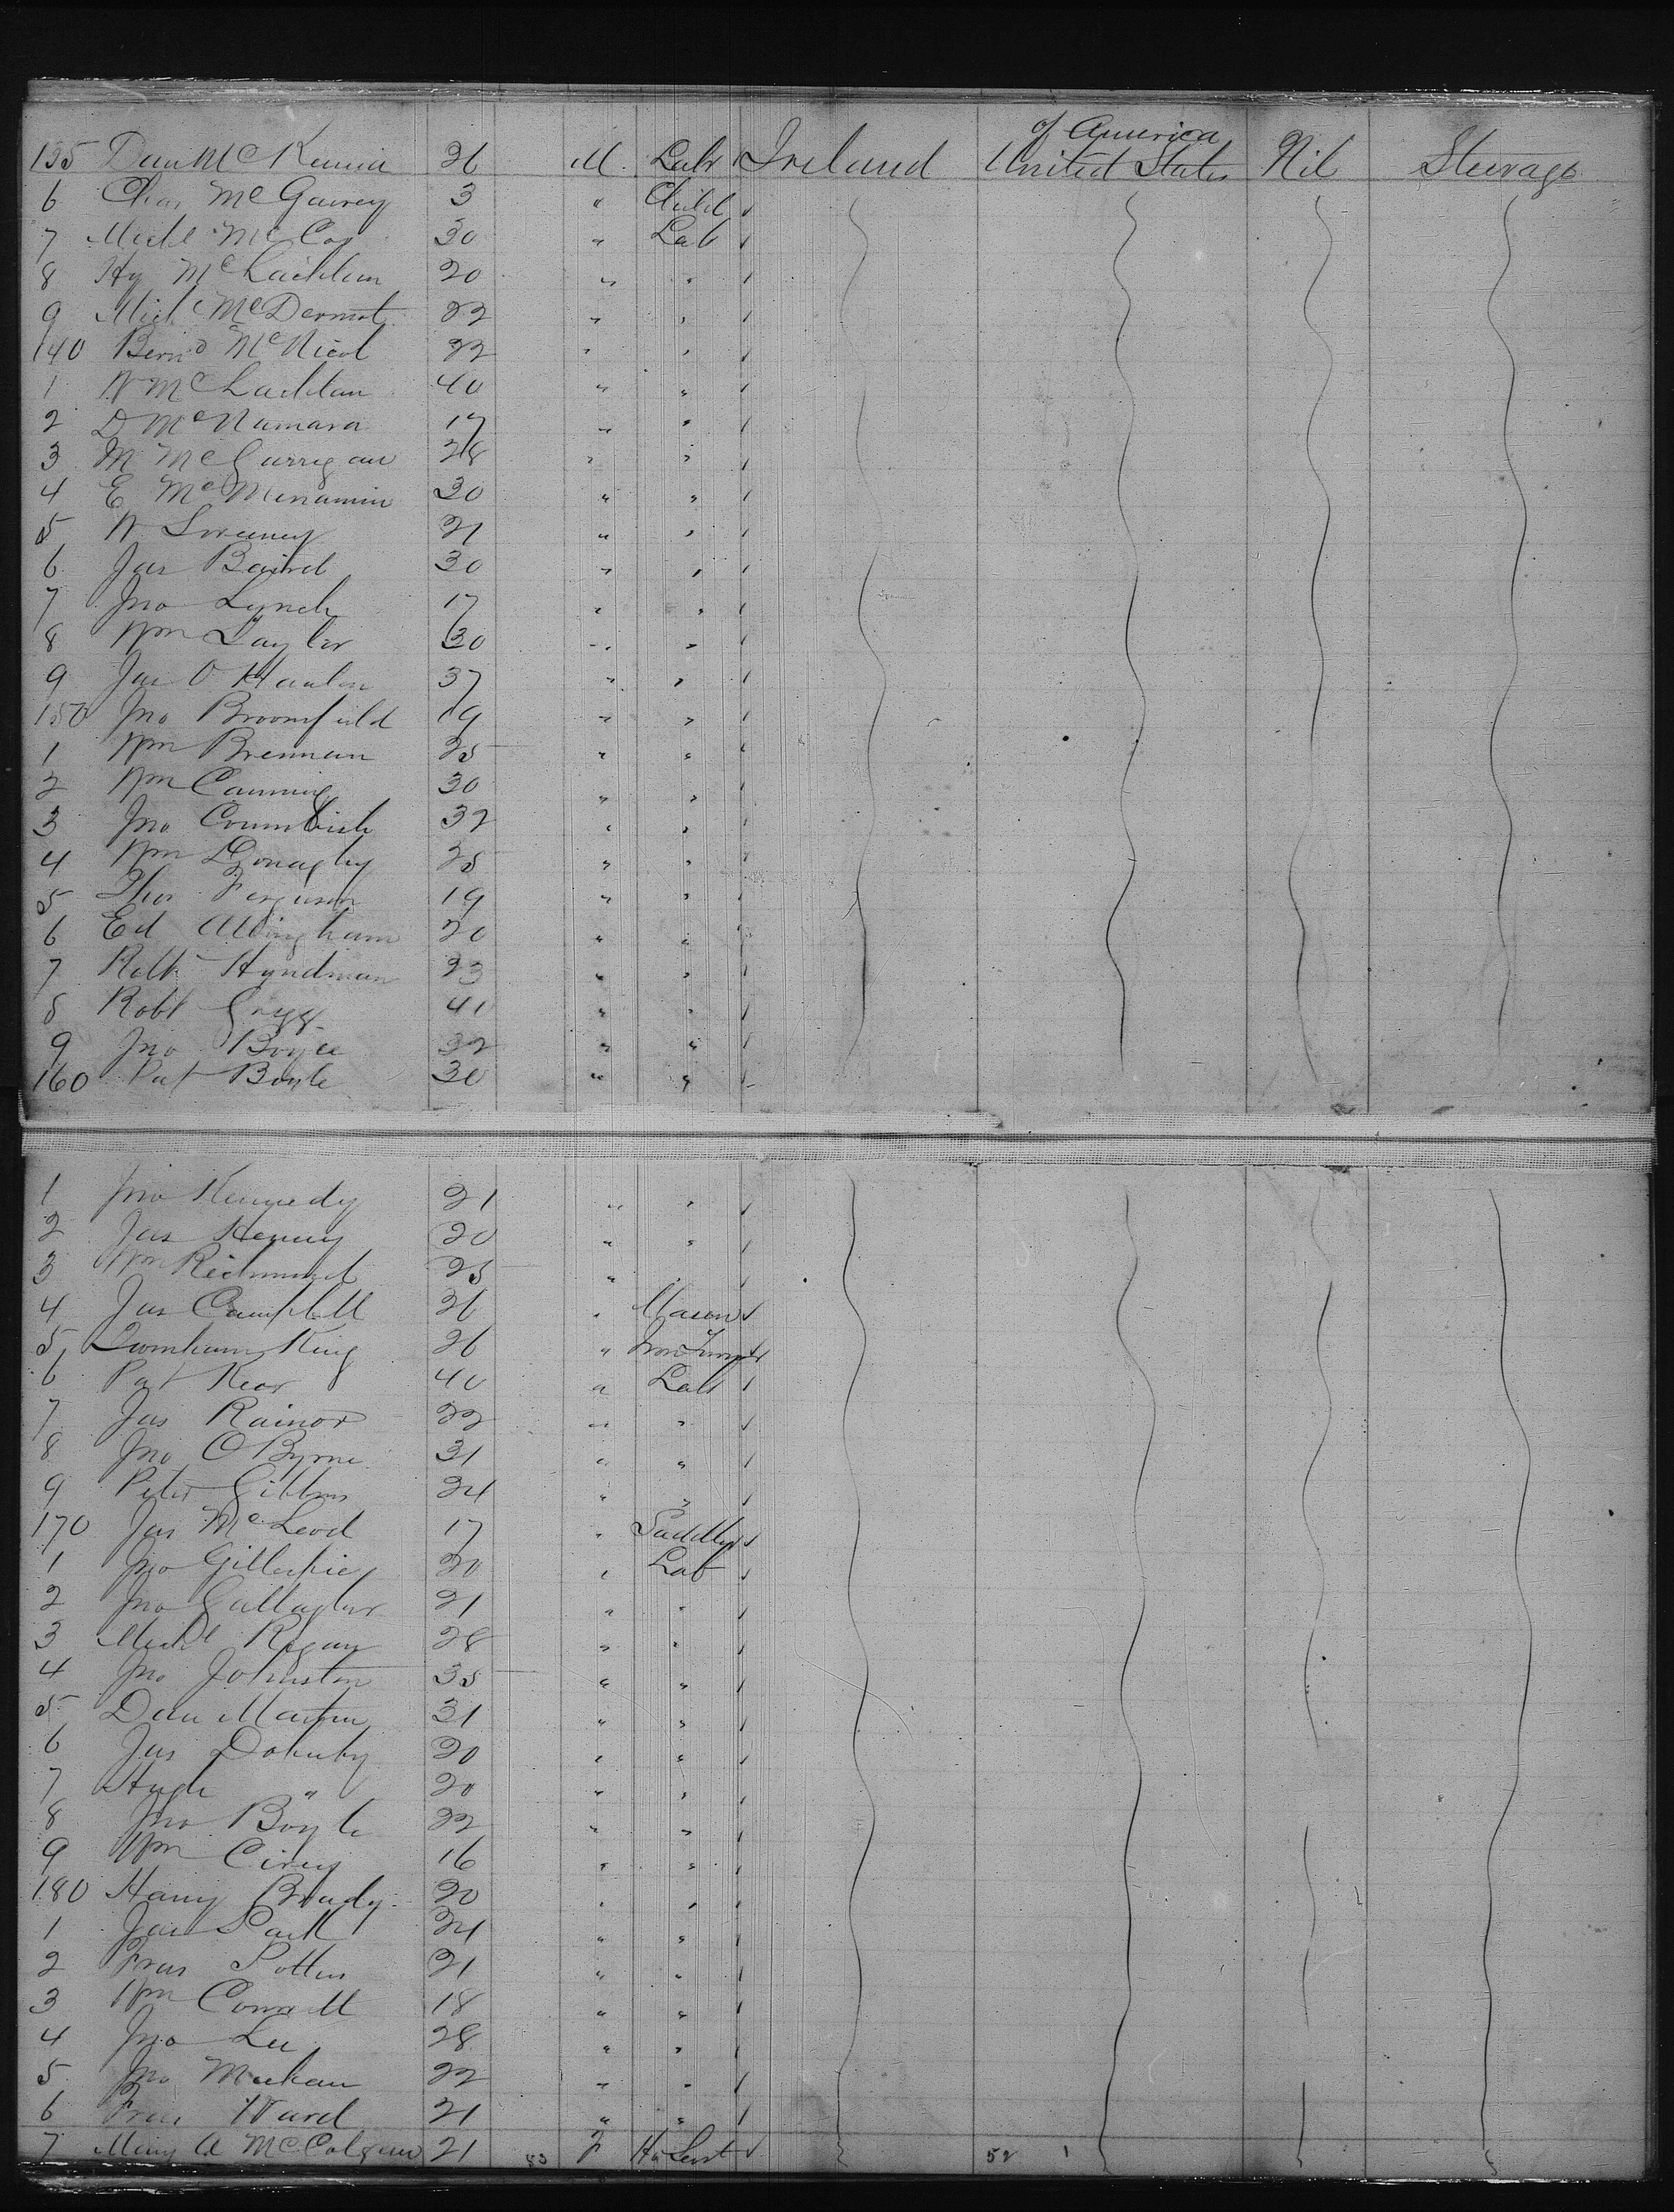 of America
135 Dan McKenna 26 M Labr Ireland United States Nil Steerage
6 Chas McGauvey 3 " Child
7 Michl McCoy 30 " Lab
8 Hy McLachlan 20 " "
9 Mich McDermot 22 " "
140 Bernd McNicol 22 " "
1 W McLachlan 40 " "
2 D McNamara 17 " "
3 M McGurrigan 28 " "
4 E McMenamin 30 " "
5 W Sweeney 21 " "
6 Jas Baird 30 " "
7 Jno Lynch 17 " "
8 Wm Taylor 30 " "
9 Jas O Hanlon 37 " "
150 Jno Broomfield 19 " "
1 Wm Brennan 25 " "
2 Wm Canning 30 " "
3 Jno 32 " "
4 Wm Donaghy 25 " "
5 Thos Ferguson 19 " "
6 Ed Allingham 20 " "
7 Robt Hyndman 23 " "
8 Robt Gregg 41 " "
9 Jno Boyce 32 " "
160 Pat Boyle 30 " "
1 Jno Kennedy 21 " "
2 Jas Henny 20 " "
3 Wm Richmond 25 " "
4 Jas Campbell 26 " Mason
5 King 26 "
6 Pat Kear 40 " Lab
7 Jas Rainor 22 " "
8 Jno O Byrne 31 " "
9 Peter Gibbons 24 " "
170 Jas McLeod 17 " Saddler
1 Jno Gillespie 20 " Lab
2 Jno Gallagher 21 " "
3 Michl Regan 28 " "
4 Jno Johnston 35 " "
5 Dan Martin 31 " "
6 Jas Doherty 20 " "
7 Hugh " 20 " "
8 Jno Boyle 22 " "
9 Wm 16 " "
180 Harry Brady 20 " "
1 Jas 24 " "
2 Fras 21 " "
3 Wm 18 " "
4 Jno Lee 28 " "
5 Jno Meehan 22 " "
6 Fras Ward 21 " "
7 Mary A McColgan 21 F 52 1